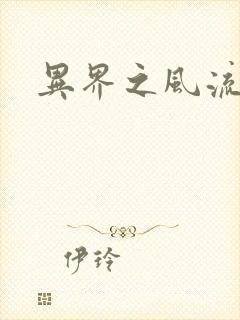 異界之風流
伊玲